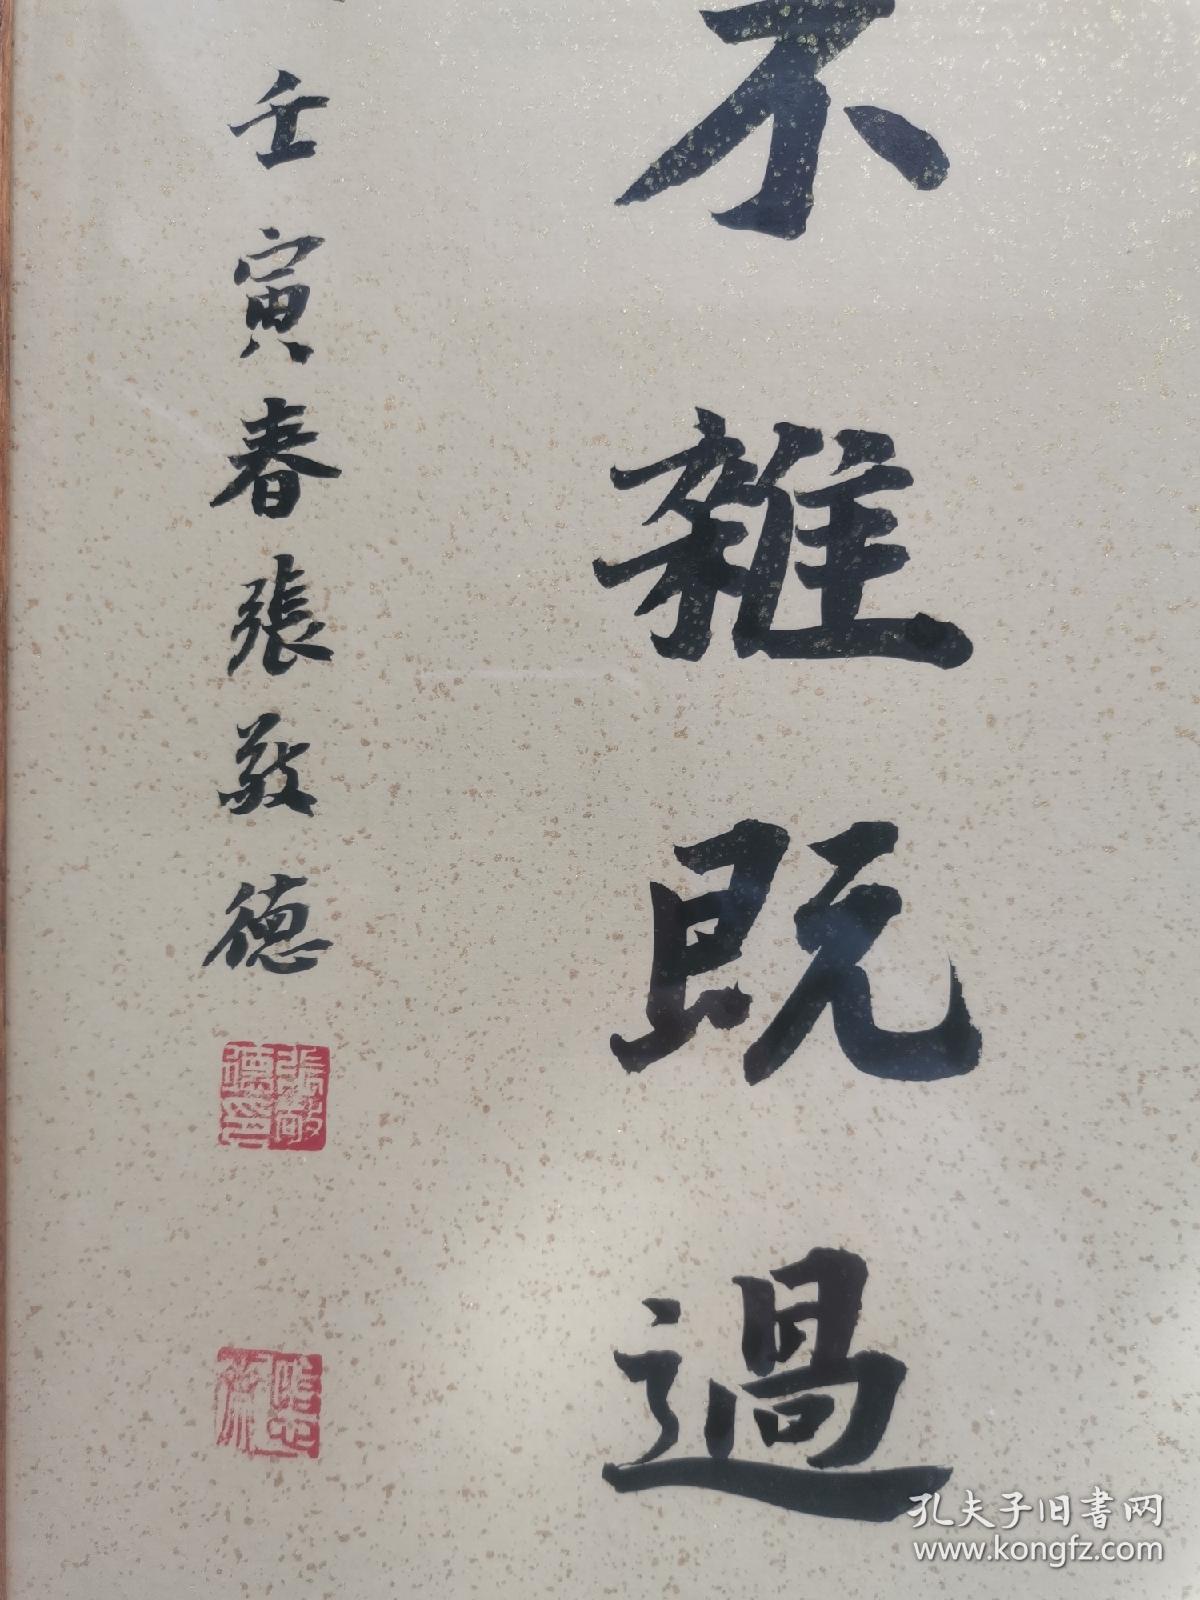 不雜既過
壬寅春張敬德
張敬德印
孔夫子旧书网
www.kongfz.com